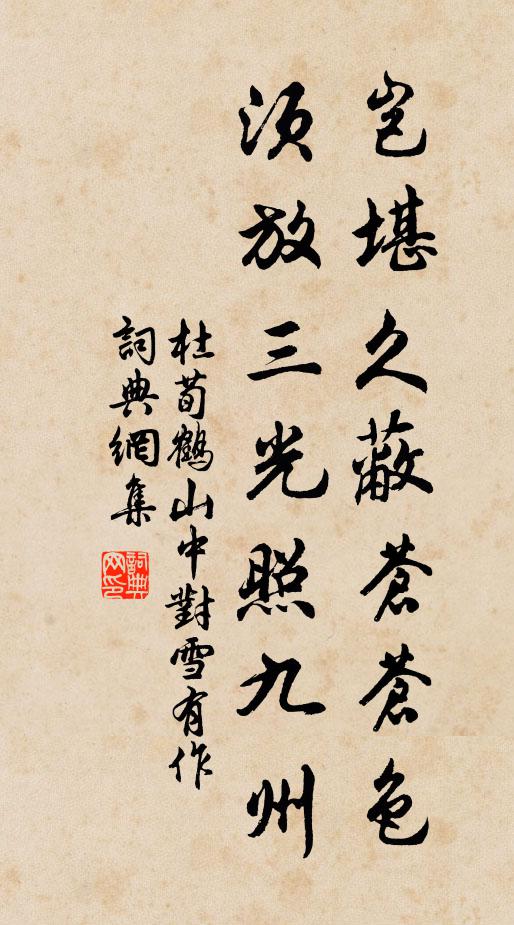 豈堪久蔽蒼蒼色
須放三光照九州
杜荀鶴山中對雪有作
詞典網集
詞典
网印